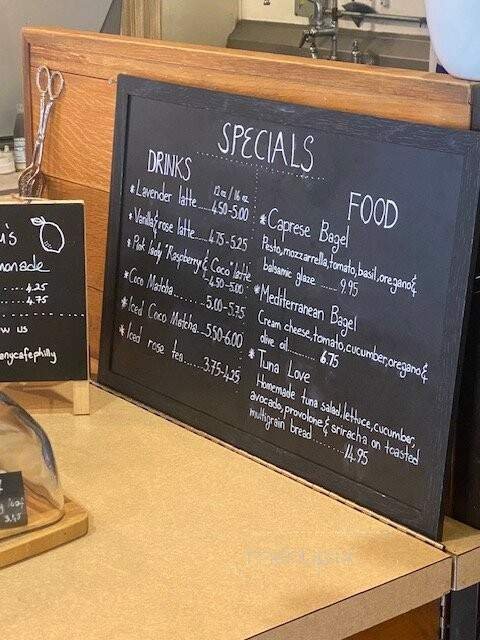 SPECIALS
DRINKS
12 oz / 16 oz
* Lavender latte ..... 4.50-5.00
* Vanilla & rose latte ..... 4.75-5.25
* Pink lady "Raspberry & Coco" latte
4.50-5.00
* Coco Matcha ........ 5.00-5.75
* Iced Coco Matcha ... 5.50-6.00
* Iced rose tea ...... 3.75-4.25
FOOD
* Caprese Bagel
Pesto, mozzrrella, tomato, basil, oregano &
balsamic glaze ........ 9.95
* Mediterranean Bagel
Cream cheese, tomato, cucumber, oregano &
olive oil ........ 6.75
* Tuna Love
Homemade tuna salad, lettuce, cucumber,
avocado, provolone & sriracha on toasted
multigrain bread ........ 14.95
u's
monade
..... 4.25
..... 4.75
w us
anycafephilly
loaf
3.95